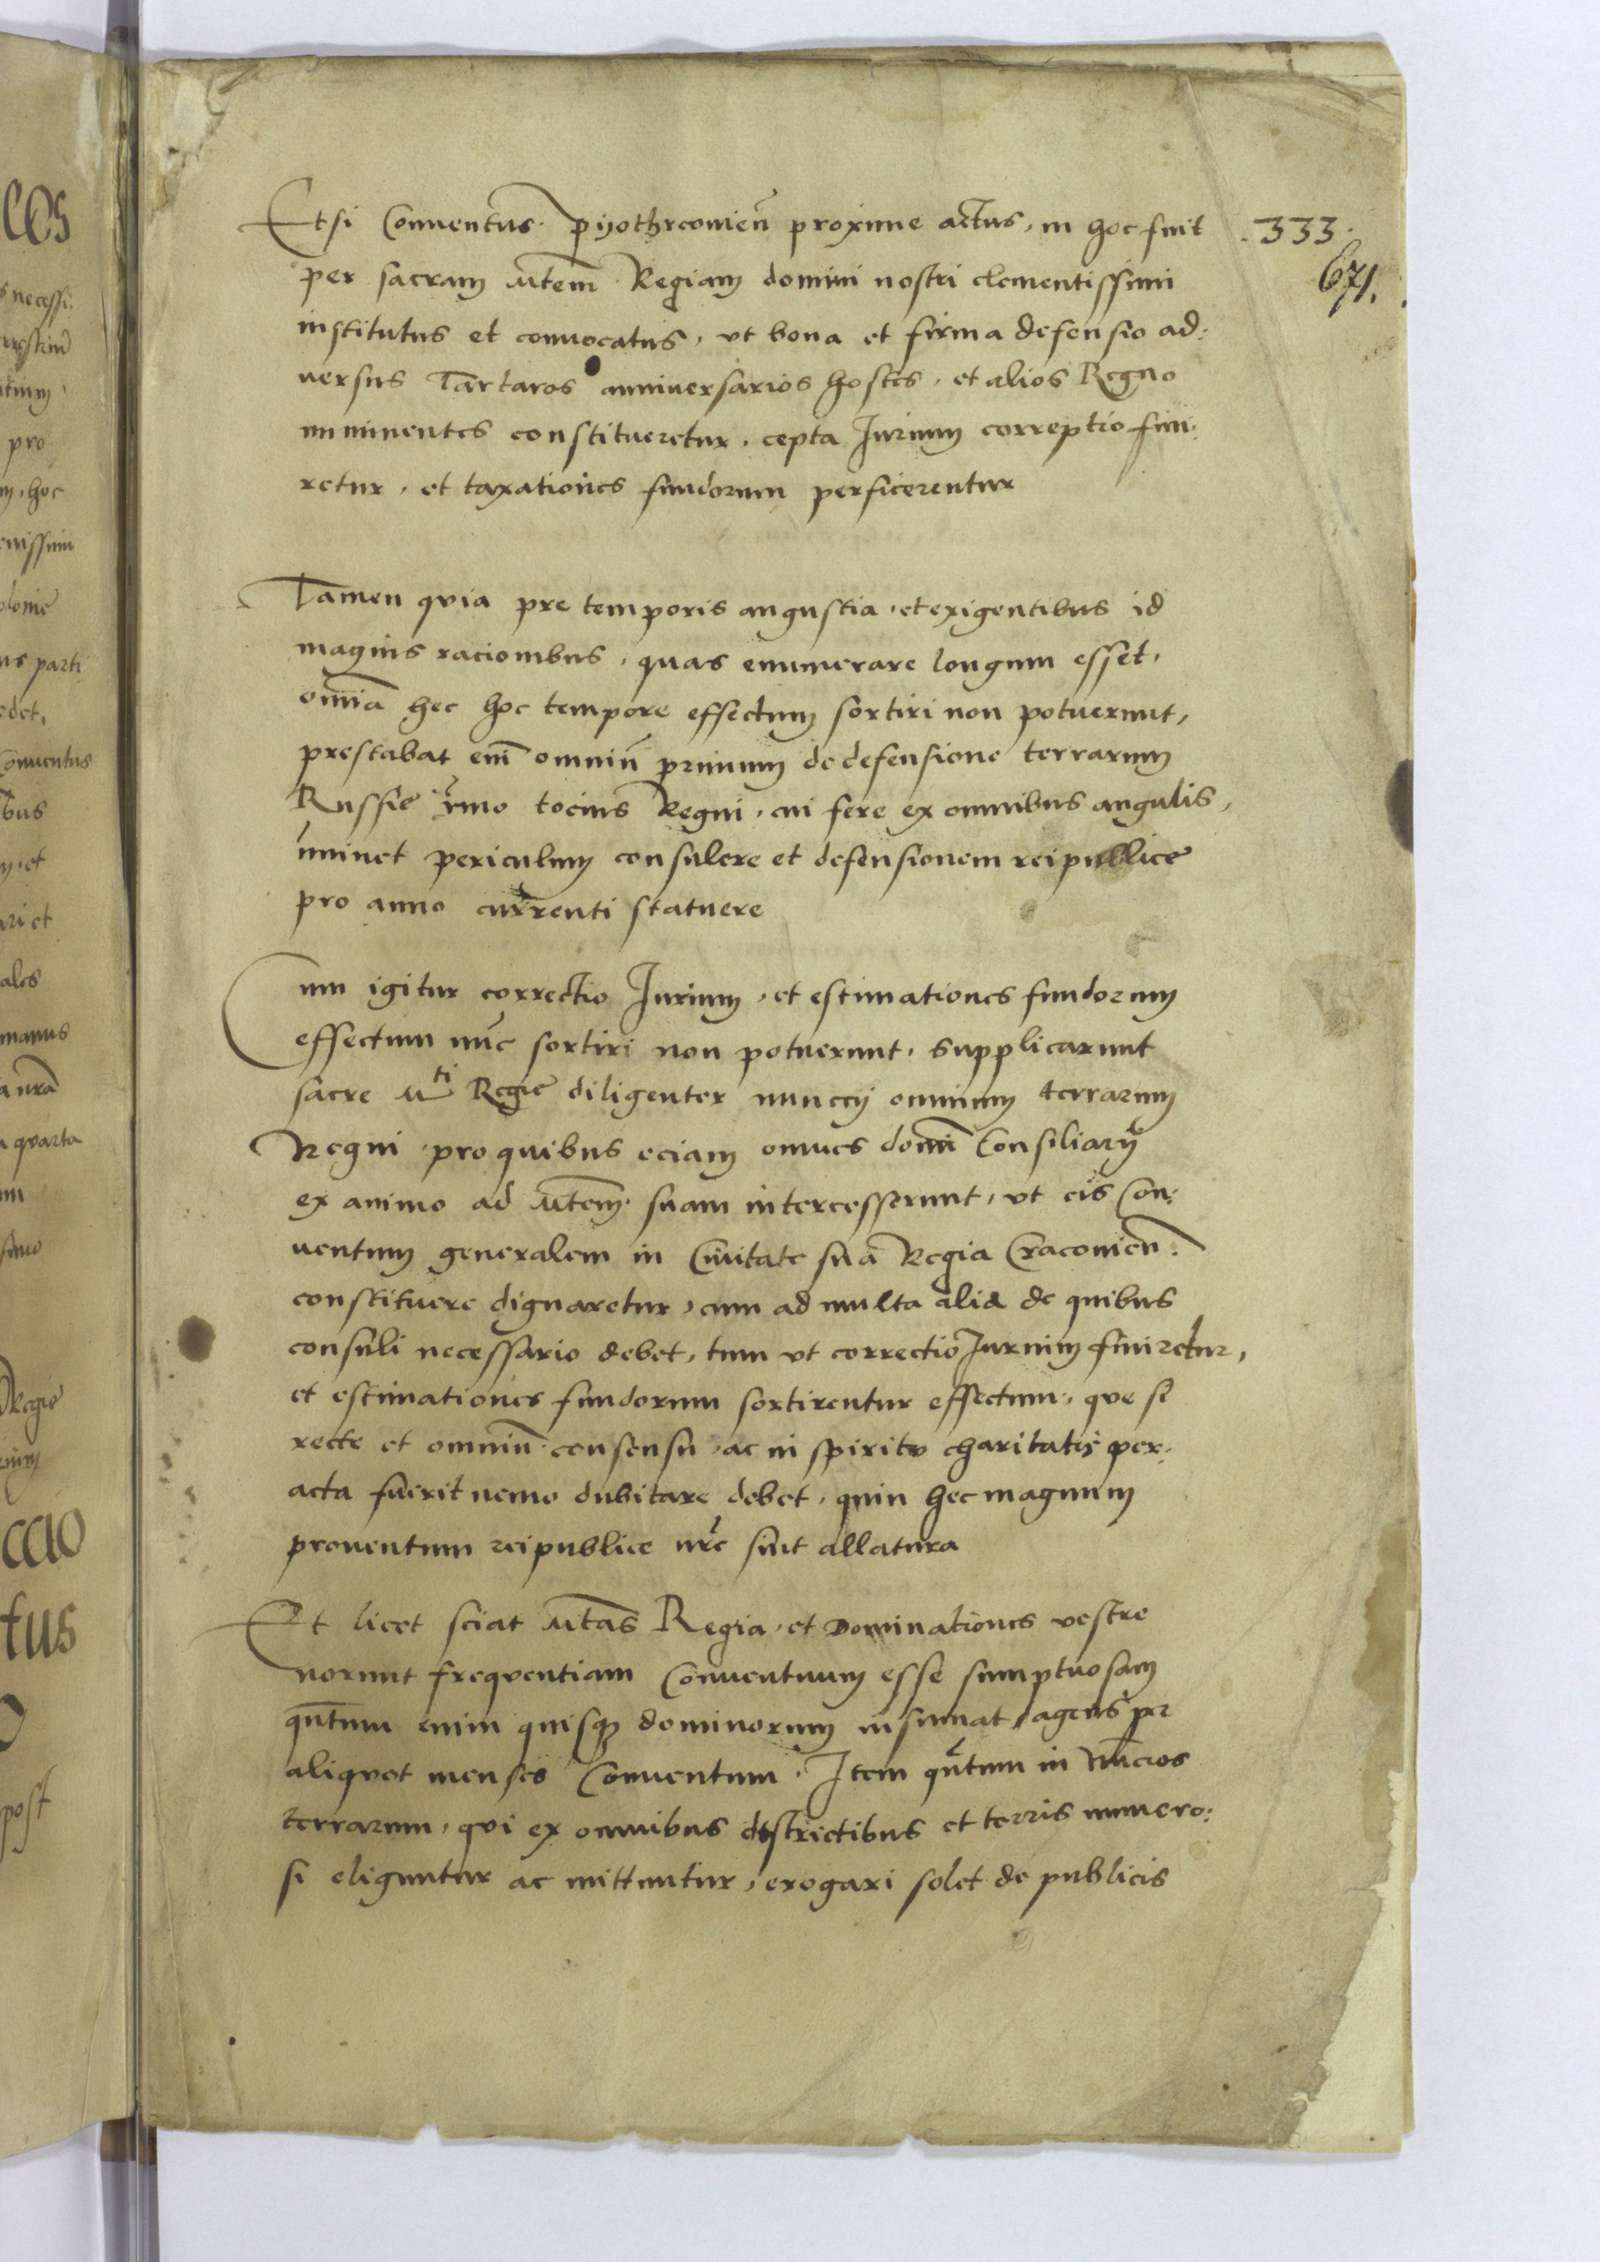 Etsi Conventus Pyothrconien̄ proxime actus, in hoc fuit
.333.
671.
per sacram Mtem̄ Regiam domini nostri clementissimi
institutus et convocatus, ut bona et firma defensio ad:
versus Tartaros anniversarios hostes, et alios Regno
imminentes constitueretur, cepta Jurium correptio fini:
retur, et taxationes fundorum perficerentur
Tamen quia pre temporis angustia, et exigentibus id
magnis racionibus, quas enumerare longum esset,
omia̅ hec hoc tempore effectum sortiri non potuerunt,
prestabat em̄ omniu̅ primum de defensione terrarum
Russie ymo tocius Regni, cui fere ex omnibus angulis,
iminet periculum consulere et defensionem reipublice
pro anno currenti statuere
Cum igitur correctio Jurium, et estimationes fundorum
effectum nūc sortiri non potuerunt, supplicarunt
sacre Mti Regie diligenter nunccij omnium terrarum
Regni pro quibus eciam omnes domi̅ Consiliarij
ex animo ad Mtem̄ suam intercesserunt, ut eis Con:
ventum generalem in Civitate sua Regia Cracovien̄.
constituere dignaretur, cum ad multa alia de quibus
consuli necessario debet, tum ut correctio Jurium finiretur,
et estimationes fundorum sortirentur effectum, que si
recte et omniu̅ consensu, ac in spiritu charitatis per:
acta fuerit nemo dubitare debet, quin hec magnum
proventum reipublice nr̄e sint allatura
Et licet sciat Mtas̄ Regia, et Dominationes vestre
norunt frequentiam Conventuum esse sumptuosam
qūtum enim quisq₃ dominorum insumat, agens per
aliquot menses Conventum. Item qūtum in Nūcios
terrarum, qui ex omnibus districtibus et terris numero:
si eliguntur ac mittuntur, erogari solet de publicis